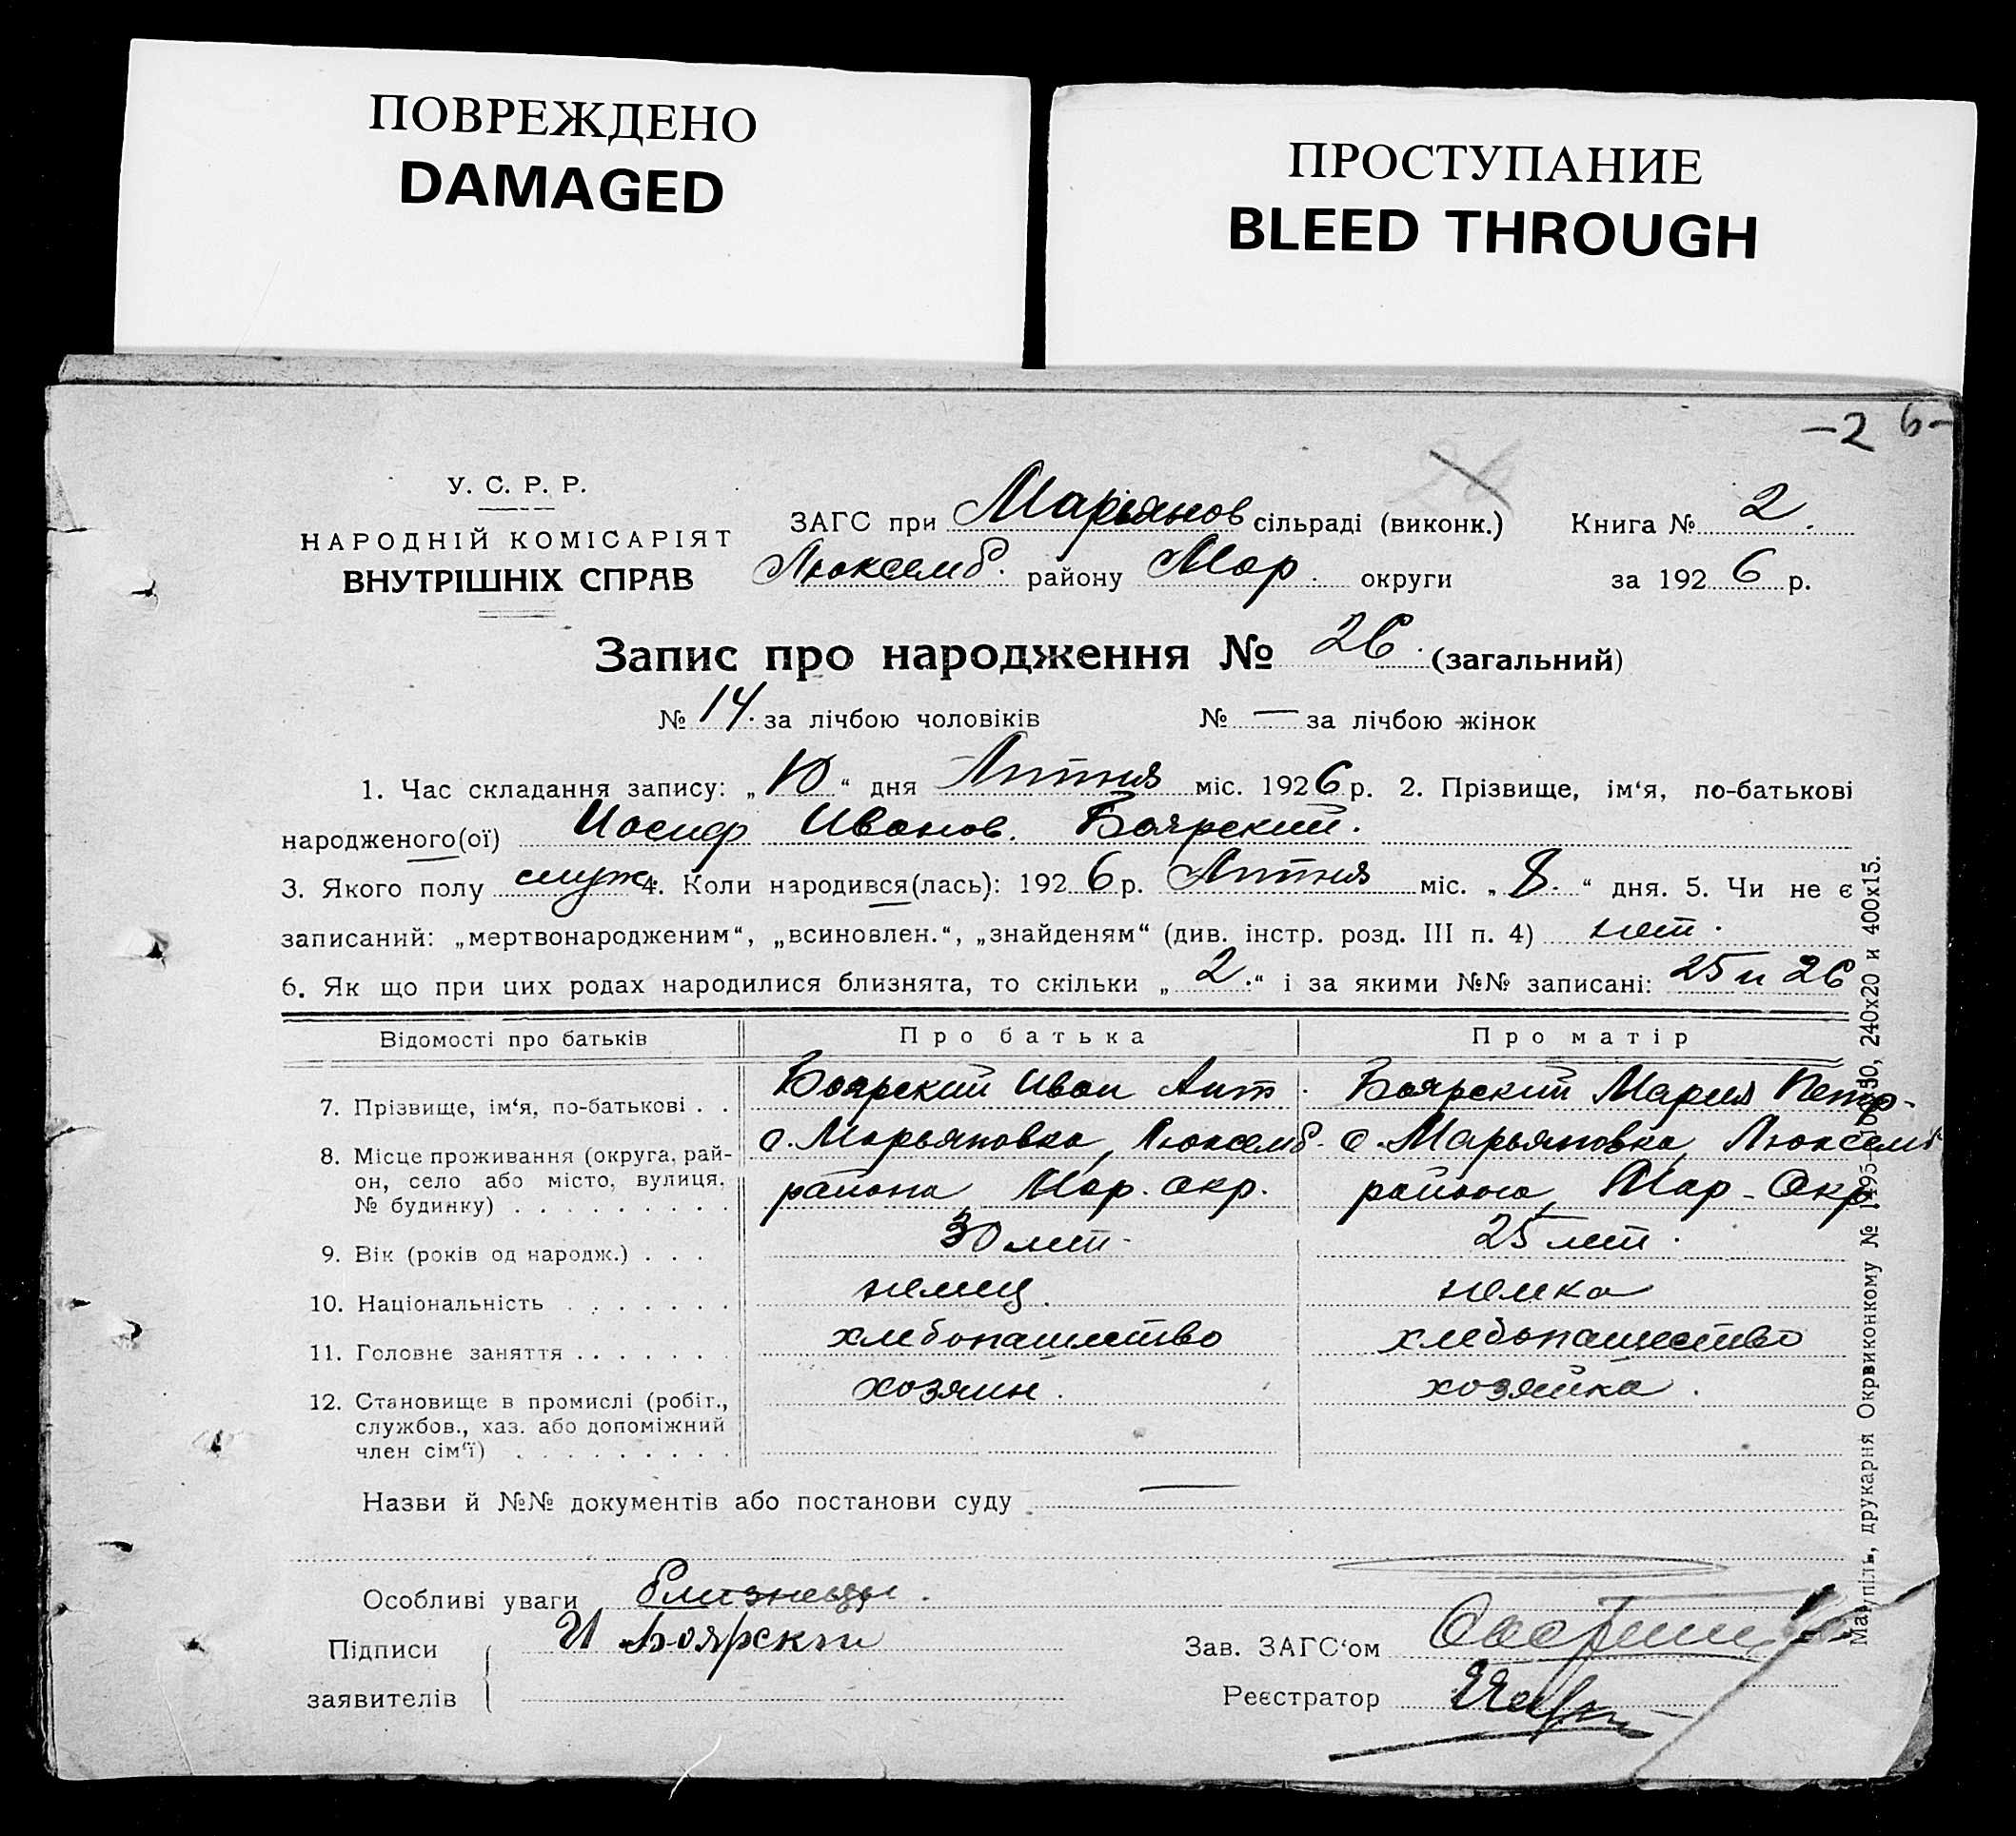 ПОВРЕЖДЕНО
DAMAGED
ПРОСТУПАНИЕ
BLEED THROUGH
–2 6–
26
У. С. Р. Р.
НАРОДНІЙ КОМІСАРІЯТ
ВНУТРІШНІХ СПРАВ
ЗАГС при Маріянов сільраді (виконк.) Книга № 2.
Люксемб. району Мар. округи за 1926 р.
Запис про народження № 26. (загальний)
№ 14. за лічбою чоловіків № — за лічбою жінок
1. Час складання запису: „10“ дня міс. 1926 р. 2. Прізвище, ім‘я, по-батькові
народженого(ої) Иосиф Иванов. Боярский.
3. Якого полу 4. Коли народився(лась): 1926 р. міс. „8.“ дня. 5. Чи не є
записаний: „мертвонародженим“, „всиновлен.“, „знайденям“ (див. інстр. розд. III п. 4) нет.
6. Як що при цих родах народилися близнята, то скільки „2.“ і за якими №№ записані: 25 и 26
Відомості про батьків Про батька Про матір
7. Прізвище, ім‘я, по-батькові . . Боярский Иван Ант. Боярский Мария Петр-
8. Місце проживання (округа, рай-
он, село або місто, вулиця,
№ будинку) . . . . . . . . .
с. Марьяновка, Люксемб. с. Марьяновка, Люксемб
района, Мар. окр. района, Мар. Окр
9. Вік (років од народж.) . . . 30 лет. 25 лет.
10. Національність . . . . . . . немец. немка
11. Головне заняття . . . . . . . хлебопашество хлебопашество
12. Становище в промислі (робіт.,
службов., хаз. або допоміжний
член сім‘ї) . . . . . . . . .
хозяин. хозяйка.
Назви й №№ документів або постанови суду —
Особливі уваги близнецы.
Підписи
заявителів
И Боярски
Зав. ЗАГС‘ом
Реєстратор
Маріупіль, друкарня Окрвиконкому № 1495– 240x20 и 400x15.